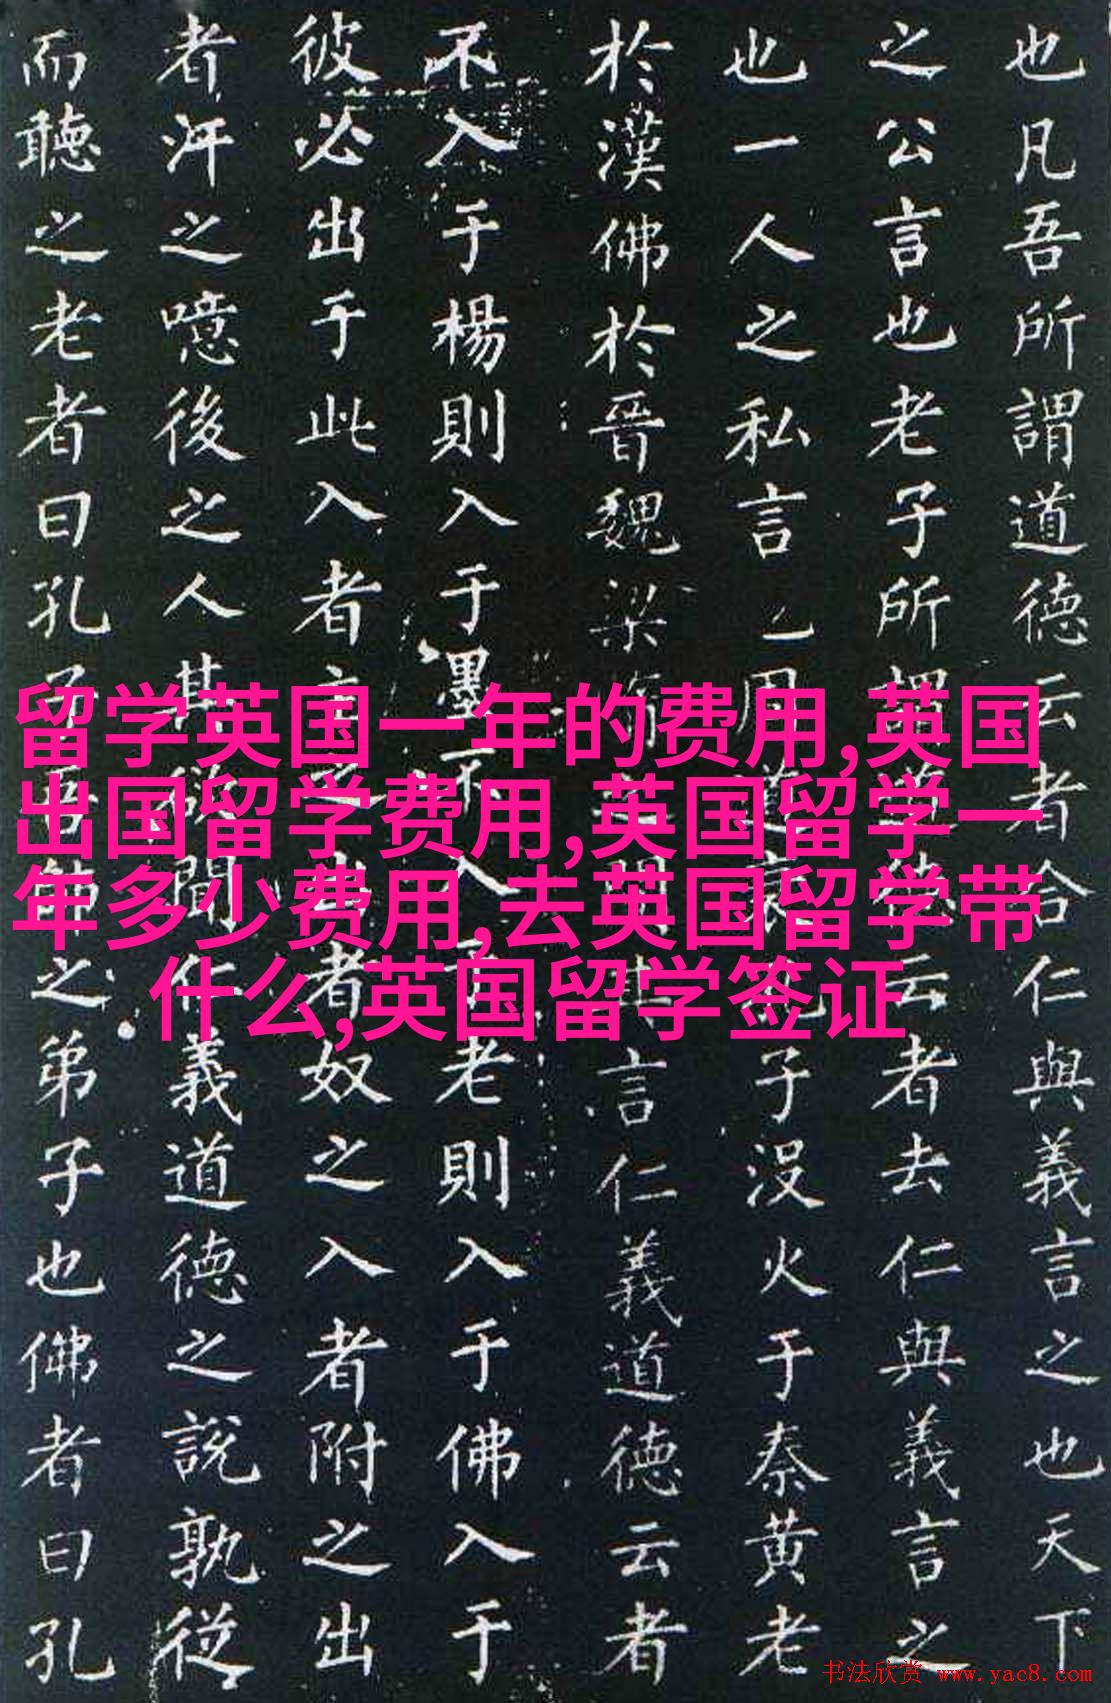 也凡吾所謂道德云者合仁與義言之也天下
之公言也老子所謂道德云者去仁與義言之
也一人之私言周道衰孔子没火于秦黄老
於漢佛於晉魏梁隋之間其言仁義道德云者
不入于楊則入于墨不入于老則入于佛入于
彼必出于此入者主之出者奴之入者附之出
者汙之噫後之人其欲聞仁義道德之說孰從
而聽之老者曰孔子吾師之弟子也佛者曰孔
留学英国一年的费用,英国
出国留学费用,英国留学一
年多少费用,去英国留学带
什么,英国留学签证
书法欣赏 www.yac8.com